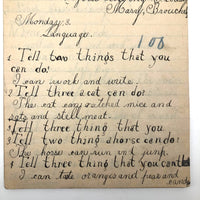 Mary, Brouch
Monday, 3.
Language.
100
1 Tell two things that you
can do?
I can work and write.
2 Tell three a cat can do?
The cat can catched mice and
rats and steel meat.
3 Tell three thing that you
3 Tell two thing a horse can do?
The horse can run and jump.
4 Tell three thing that you can
I can tide oranges and pear and
candy